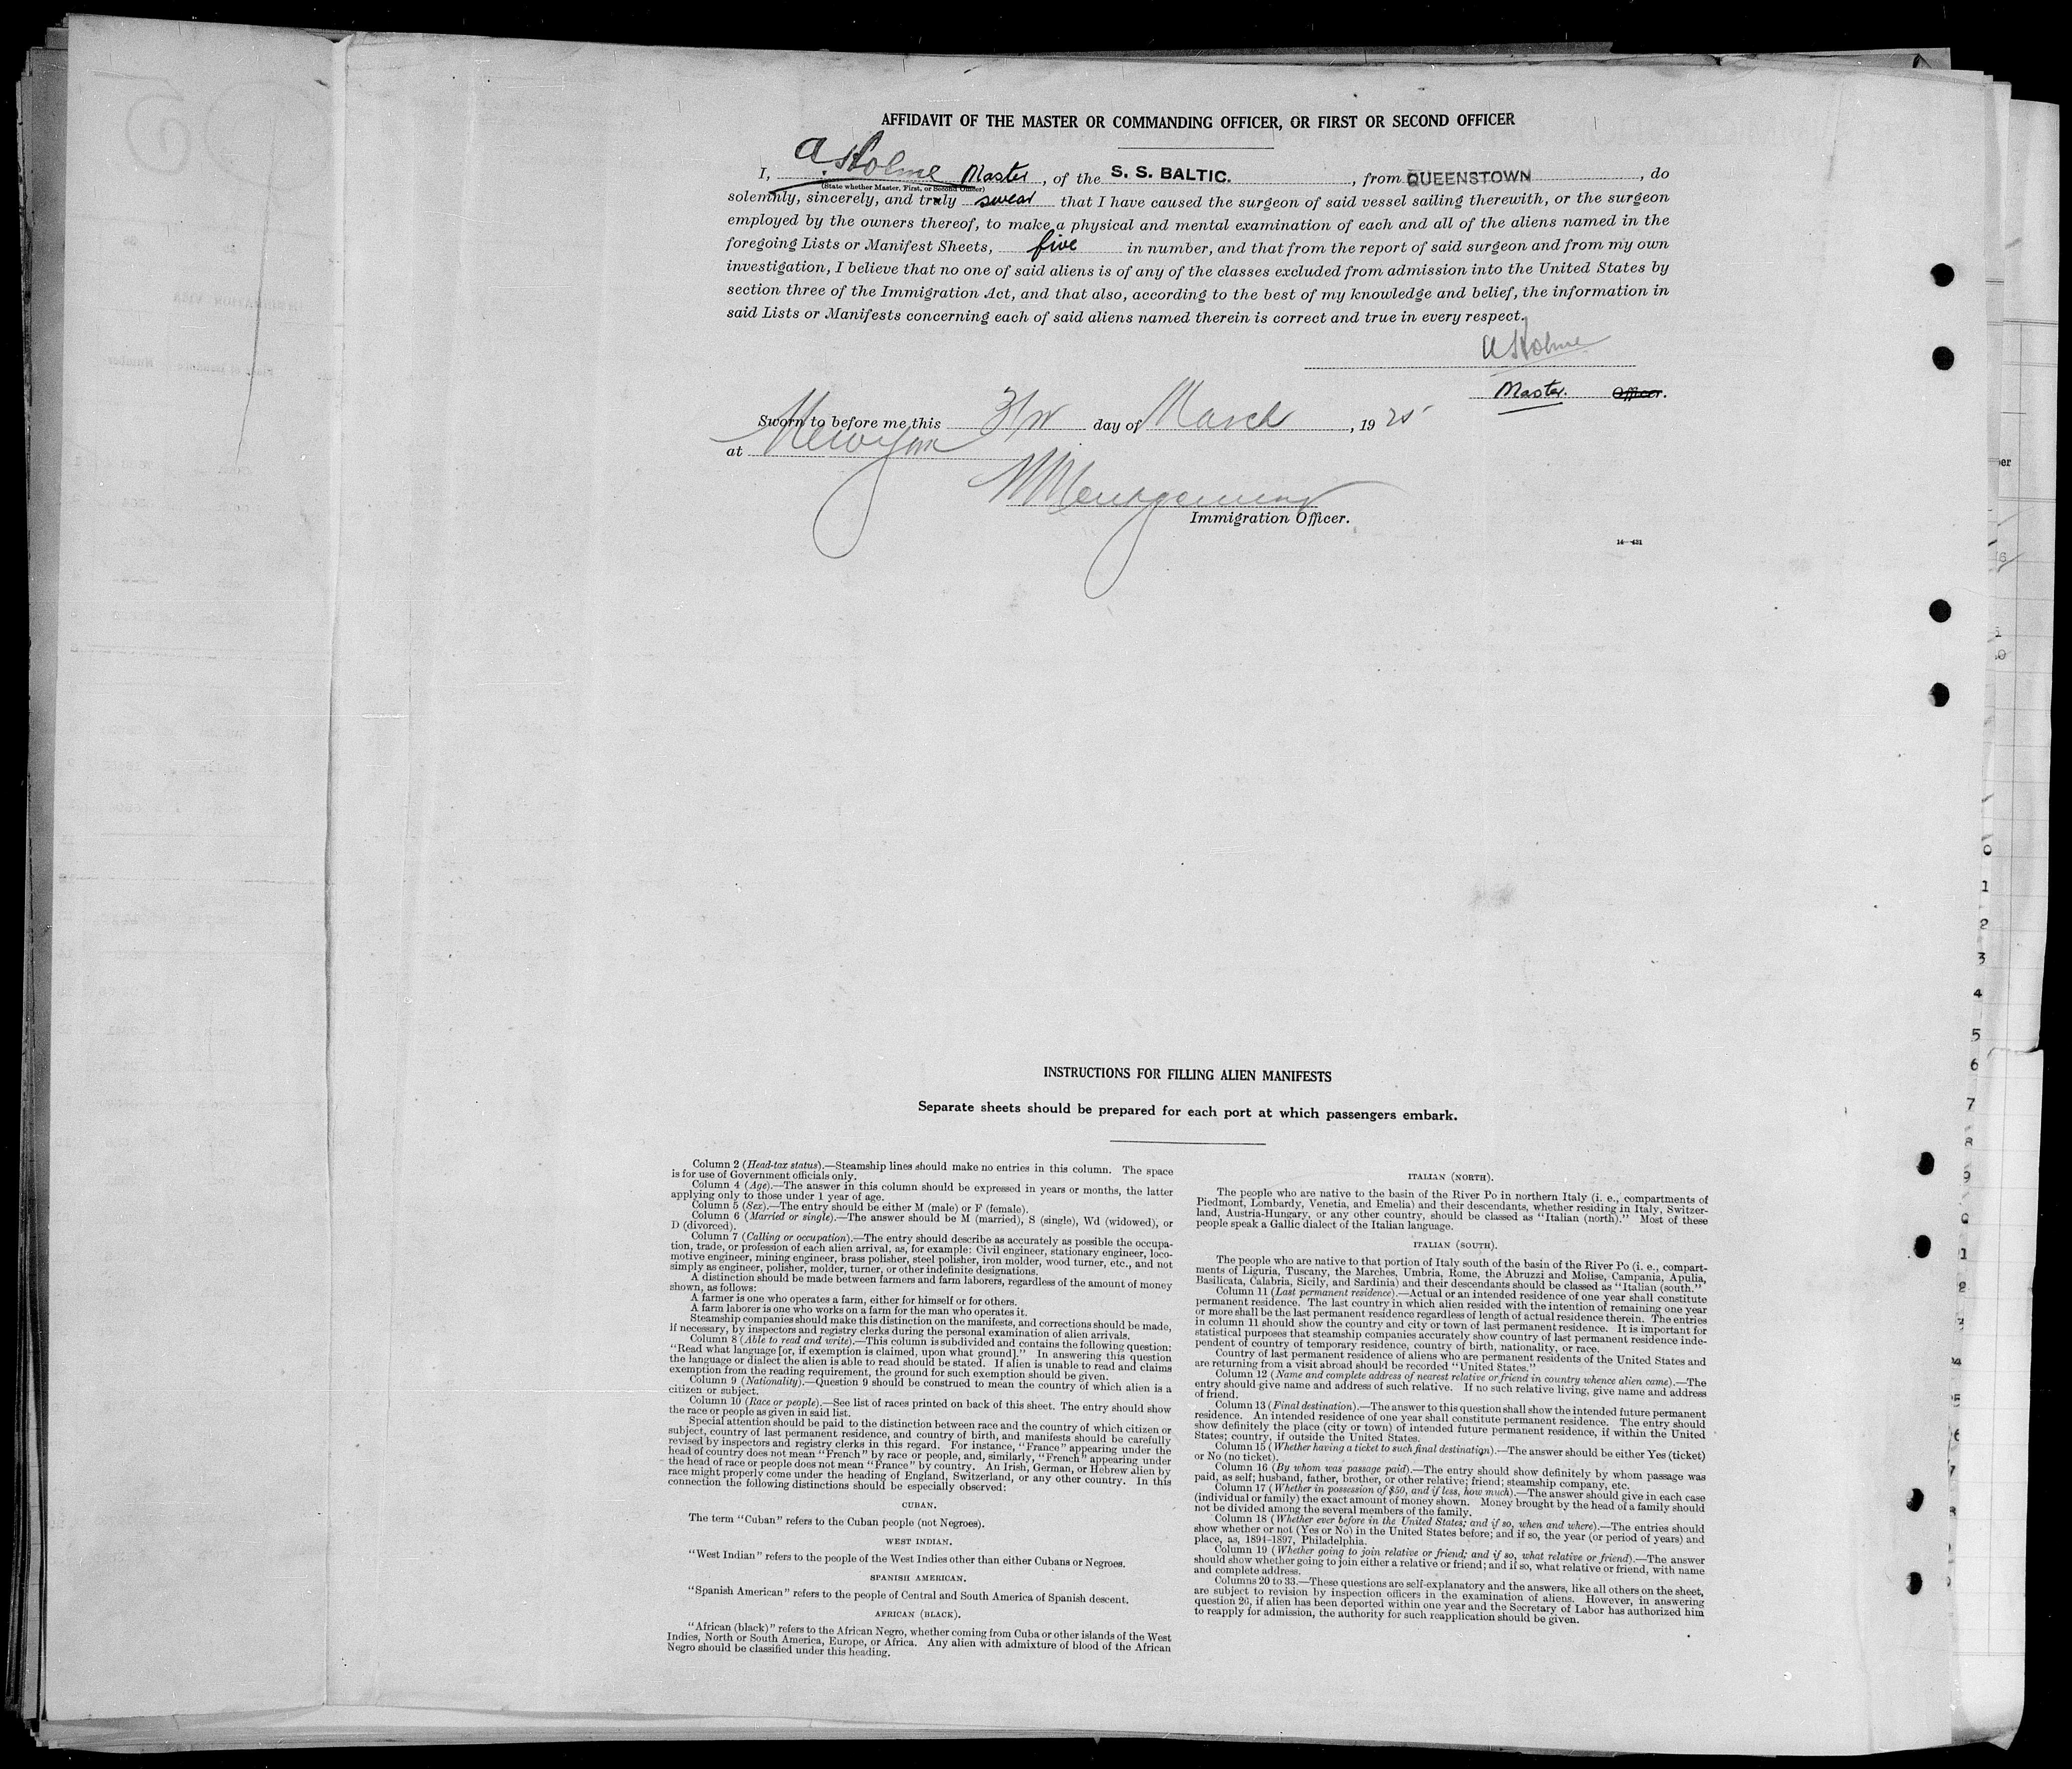 AFFIDAVIT OF THE MASTER OR COMMANDING OFFICER, OR FIRST OR SECOND OFFICER
I, A. Holme Master, of the S. S. BALTIC., from QUEENSTOWN, do
(State whether Master, First, or Second Officer)
solemnly, sincerely, and truly swear that I have caused the surgeon of said vessel sailing therewith, or the surgeon
employed by the owners thereof, to make a physical and mental examination of each and all of the aliens named in the
foregoing Lists or Manifest Sheets, five in number, and that from the report of said surgeon and from my own
investigation, I believe that no one of said aliens is of any of the classes excluded from admission into the United States by
section three of the Immigration Act, and that also, according to the best of my knowledge and belief, the information in
said Lists or Manifests concerning each of said aliens named therein is correct and true in every respect.
A Holme
Master. Officer.
Sworn to before me this 31st day of March, 1925
at New York
Immigration Officer.
INSTRUCTIONS FOR FILLING ALIEN MANIFESTS
Separate sheets should be prepared for each port at which passengers embark.
Column 2 (Head-tax status).—Steamship lines should make no entries in this column. The space
is for use of Government officials only.
Column 4 (Age).—The answer in this column should be expressed in years or months, the latter
applying only to those under 1 year of age.
Column 5 (Sex).—The entry should be either M (male) or F (female).
Column 6 (Married or single).—The answer should be M (married), S (single), Wd (widowed), or
D (divorced).
Column 7 (Calling or occupation).—The entry should describe as accurately as possible the occupa-
tion, trade, or profession of each alien arrival, as, for example: Civil engineer, stationary engineer, loco-
motive engineer, mining engineer, brass polisher, steel polisher, iron molder, wood turner, etc., and not
simply as engineer, polisher, molder, turner, or other indefinite designations.
A distinction should be made between farmers and farm laborers, regardless of the amount of money
shown, as follows:
A farmer is one who operates a farm, either for himself or for others.
A farm laborer is one who works on a farm for the man who operates it.
Steamship companies should make this distinction on the manifests, and corrections should be made,
if necessary, by inspectors and registry clerks during the personal examination of alien arrivals.
Column 8 (Able to read and write).—This column is subdivided and contains the following question:
"Read what language [or, if exemption is claimed, upon what ground]." In answering this question
the language or dialect the alien is able to read should be stated. If alien is unable to read and claims
exemption from the reading requirement, the ground for such exemption should be given.
Column 9 (Nationality).—Question 9 should be construed to mean the country of which alien is a
citizen or subject.
Column 10 (Race or people).—See list of races printed on back of this sheet. The entry should show
the race or people as given in said list.
Special attention should be paid to the distinction between race and the country of which citizen or
subject, country of last permanent residence, and country of birth, and manifests should be carefully
revised by inspectors and registry clerks in this regard. For instance, "France" appearing under the
head of country does not mean "French" by race or people, and, similarly, "French" appearing under
the head of race or people does not mean "France" by country. An Irish, German, or Hebrew alien by
race might properly come under the heading of England, Switzerland, or any other country. In this
connection the following distinctions should be especially observed:
CUBAN.
The term "Cuban" refers to the Cuban people (not Negroes).
WEST INDIAN.
"West Indian" refers to the people of the West Indies other than either Cubans or Negroes.
SPANISH AMERICAN.
"Spanish American" refers to the people of Central and South America of Spanish descent.
AFRICAN (BLACK).
"African (black)" refers to the African Negro, whether coming from Cuba or other islands of the West
Indies, North or South America, Europe, or Africa. Any alien with admixture of blood of the African
Negro should be classified under this heading.
ITALIAN (NORTH).
The people who are native to the basin of the River Po in northern Italy (i. e., compartments of
Piedmont, Lombardy, Venetia, and Emelia) and their descendants, whether residing in Italy, Switzer-
land, Austria-Hungary, or any other country, should be classed as "Italian (north)." Most of these
people speak a Gallic dialect of the Italian language.
ITALIAN (SOUTH).
The people who are native to that portion of Italy south of the basin of the River Po (i. e., compart-
ments of Liguria, Tuscany, the Marches, Umbria, Rome, the Abruzzi and Molise, Campania, Apulia,
Basilicata, Calabria, Sicily, and Sardinia) and their descendants should be classed as "Italian (south."
Column 11 (Last permanent residence).—Actual or an intended residence of one year shall constitute
permanent residence. The last country in which alien resided with the intention of remaining one year
or more shall be the last permanent residence regardless of length of actual residence therein. The entries
in column 11 should show the country and city or town of last permanent residence. It is important for
statistical purposes that steamship companies accurately show country of last permanent residence inde-
pendent of country of temporary residence, country of birth, nationality, or race.
Country of last permanent residence of aliens who are permanent residents of the United States and
are returning from a visit abroad should be recorded "United States."
Column 12 (Name and complete address of nearest relative or friend in country whence alien came).—The
entry should give name and address of such relative. If no such relative living, give name and address
of friend.
Column 13 (Final destination).—The answer to this question shall show the intended future permanent
residence. An intended residence of one year shall constitute permanent residence. The entry should
show definitely the place (city or town) of intended future permanent residence, if within the United
States; country, if outside the United States.
Column 15 (Whether having a ticket to such final destination).—The answer should be either Yes (ticket)
or No (no ticket).
Column 16 (By whom was passage paid).—The entry should show definitely by whom passage was
paid, as self; husband, father, brother, or other relative; friend; steamship company, etc.
Column 17 (Whether in possession of $50, and if less, how much).—The answer should give in each case
(individual or family) the exact amount of money shown. Money brought by the head of a family should
not be divided among the several members of the family.
Column 18 (Whether ever before in the United States; and if so, when and where).—The entries should
show whether or not (Yes or No) in the United States before; and if so, the year (or period of years) and
place, as, 1894-1897, Philadelphia.
Column 19 (Whether going to join relative or friend; and if so, what relative or friend).—The answer
should show whether going to join either a relative or friend; and if so, what relative or friend, with name
and complete address.
Columns 20 to 33.—These questions are self-explanatory and the answers, like all others on the sheet,
are subject to revision by inspection officers in the examination of aliens. However, in answering
question 26, if alien has been deported within one year and the Secretary of Labor has authorized him
to reapply for admission, the authority for such reapplication should be given.